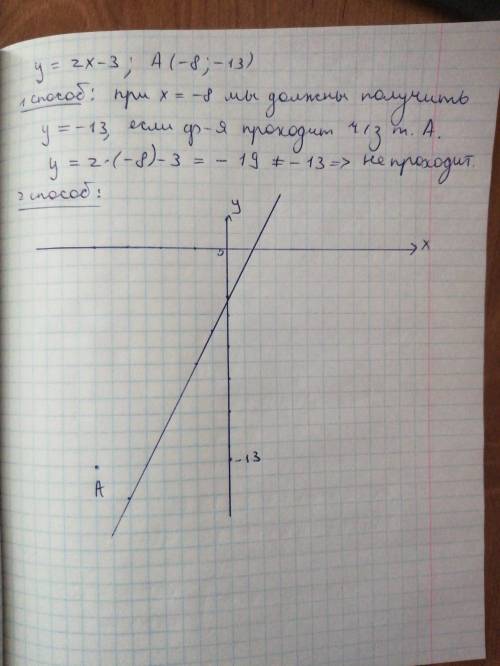 y = 2x-3; A (-8; -13)
1 способ: при x = -8 мы должны получить
y = -13, если ф-я проходит ч/з т. A.
y = 2·(-8)-3 = -19 ≠ -13 => не проходит.
2 способ:
y
0
x
-13
A